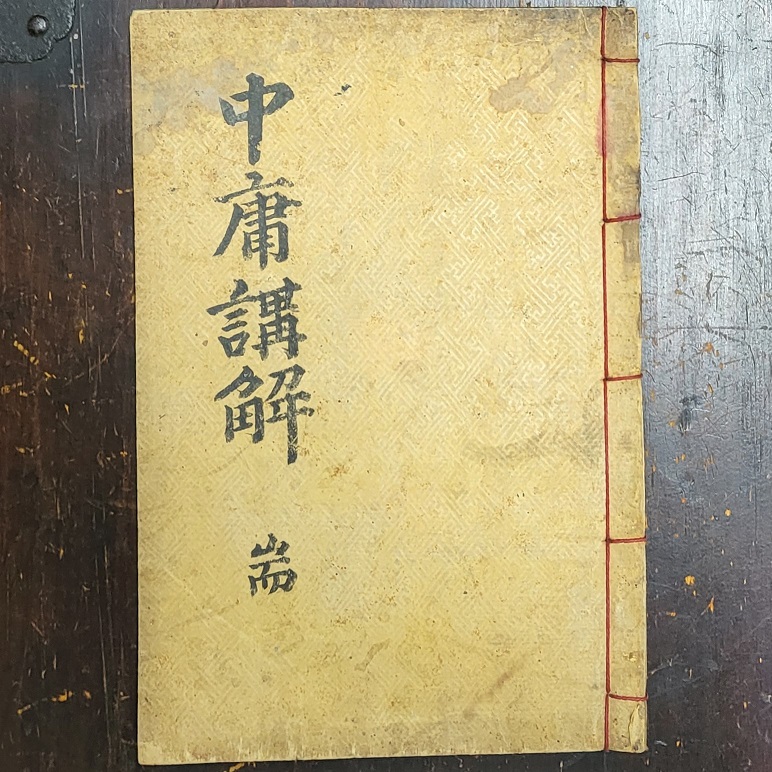 中庸講解
耑